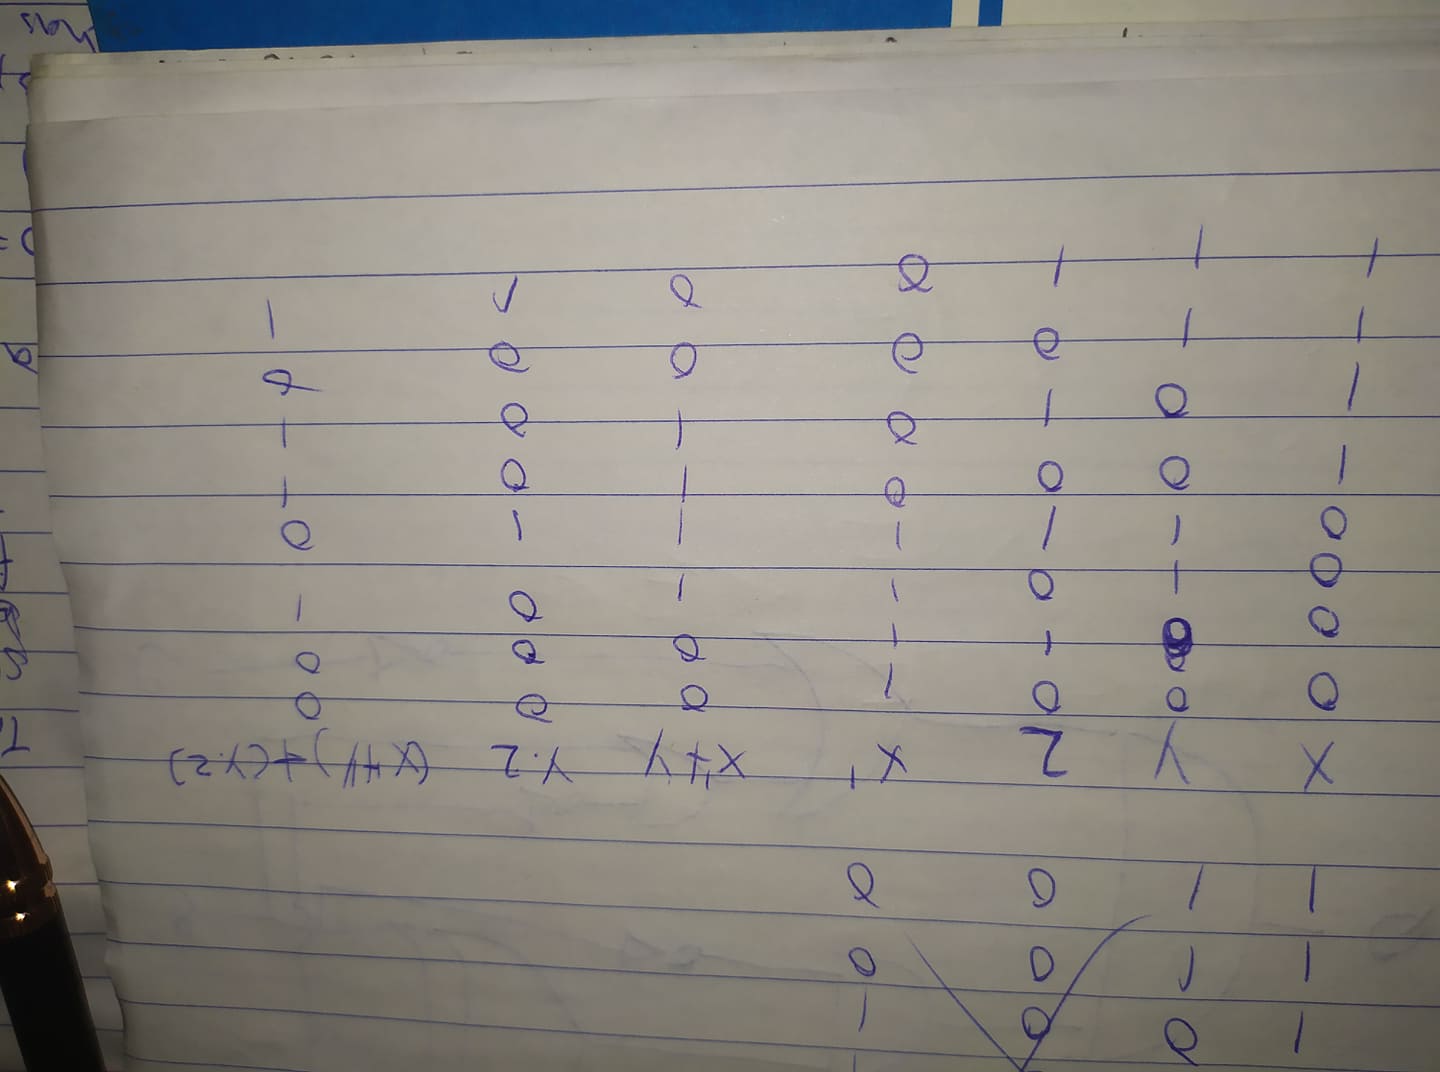 1 0 0 1
1 1 0 0
1 1 0 0
X Y Z X' X'+Y Y.Z (X'+Y)+(Y.Z)
0 0 0 1 0 0 0
0 0 1 1 0 0 0
0 1 0 1 1 0 1
0 1 1 1 1 1 0
1 0 0 0 1 0 1
1 0 1 0 1 0 1
1 1 0 0 0 0 0
1 1 1 0 0 1 1
has